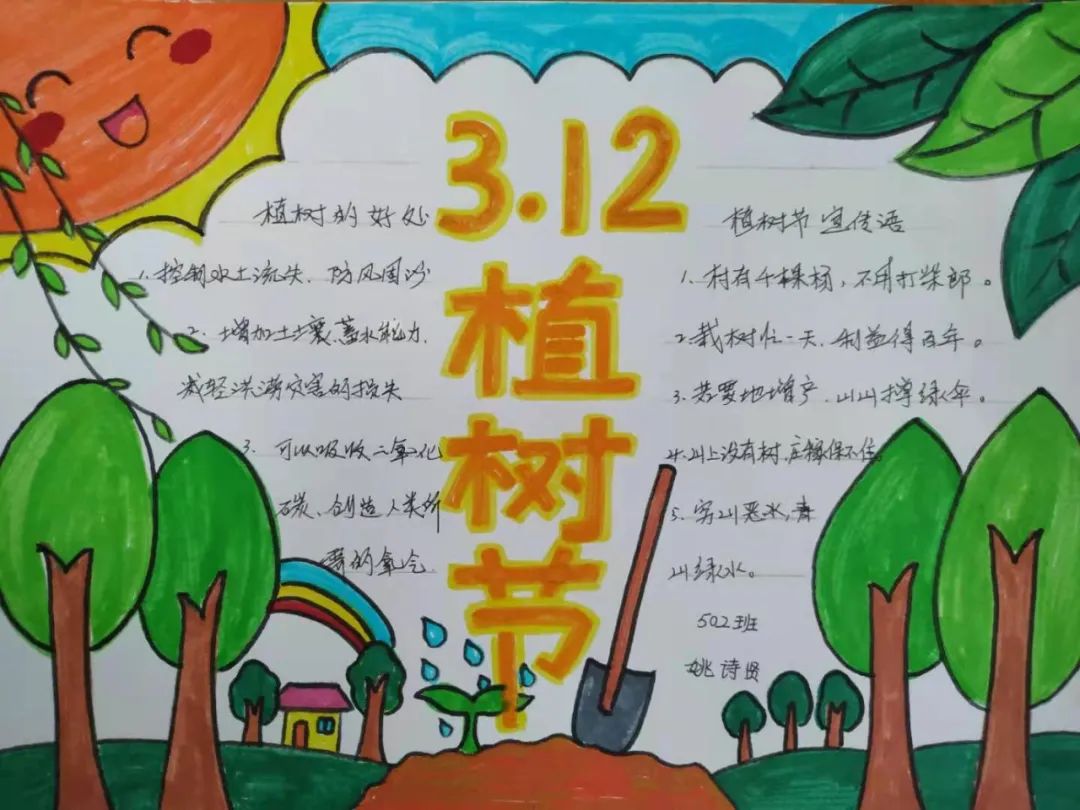 3.12
植树节
植树的好处
1. 控制水土流失、防风固沙
2. 增加土壤蓄水能力,
减轻洪涝灾害的损失
3. 可以吸收二氧化
碳、创造人类所
需的氧气
植树节宣传语
1. 村有千棵杨,不用打柴郎。
2. 栽树忙一天,利益得百年。
3. 若要地增产,山山撑绿伞。
4. 山上没有树,庄稼保不住
5. 穷山恶水,青
山绿水。
502班
姚诗贤